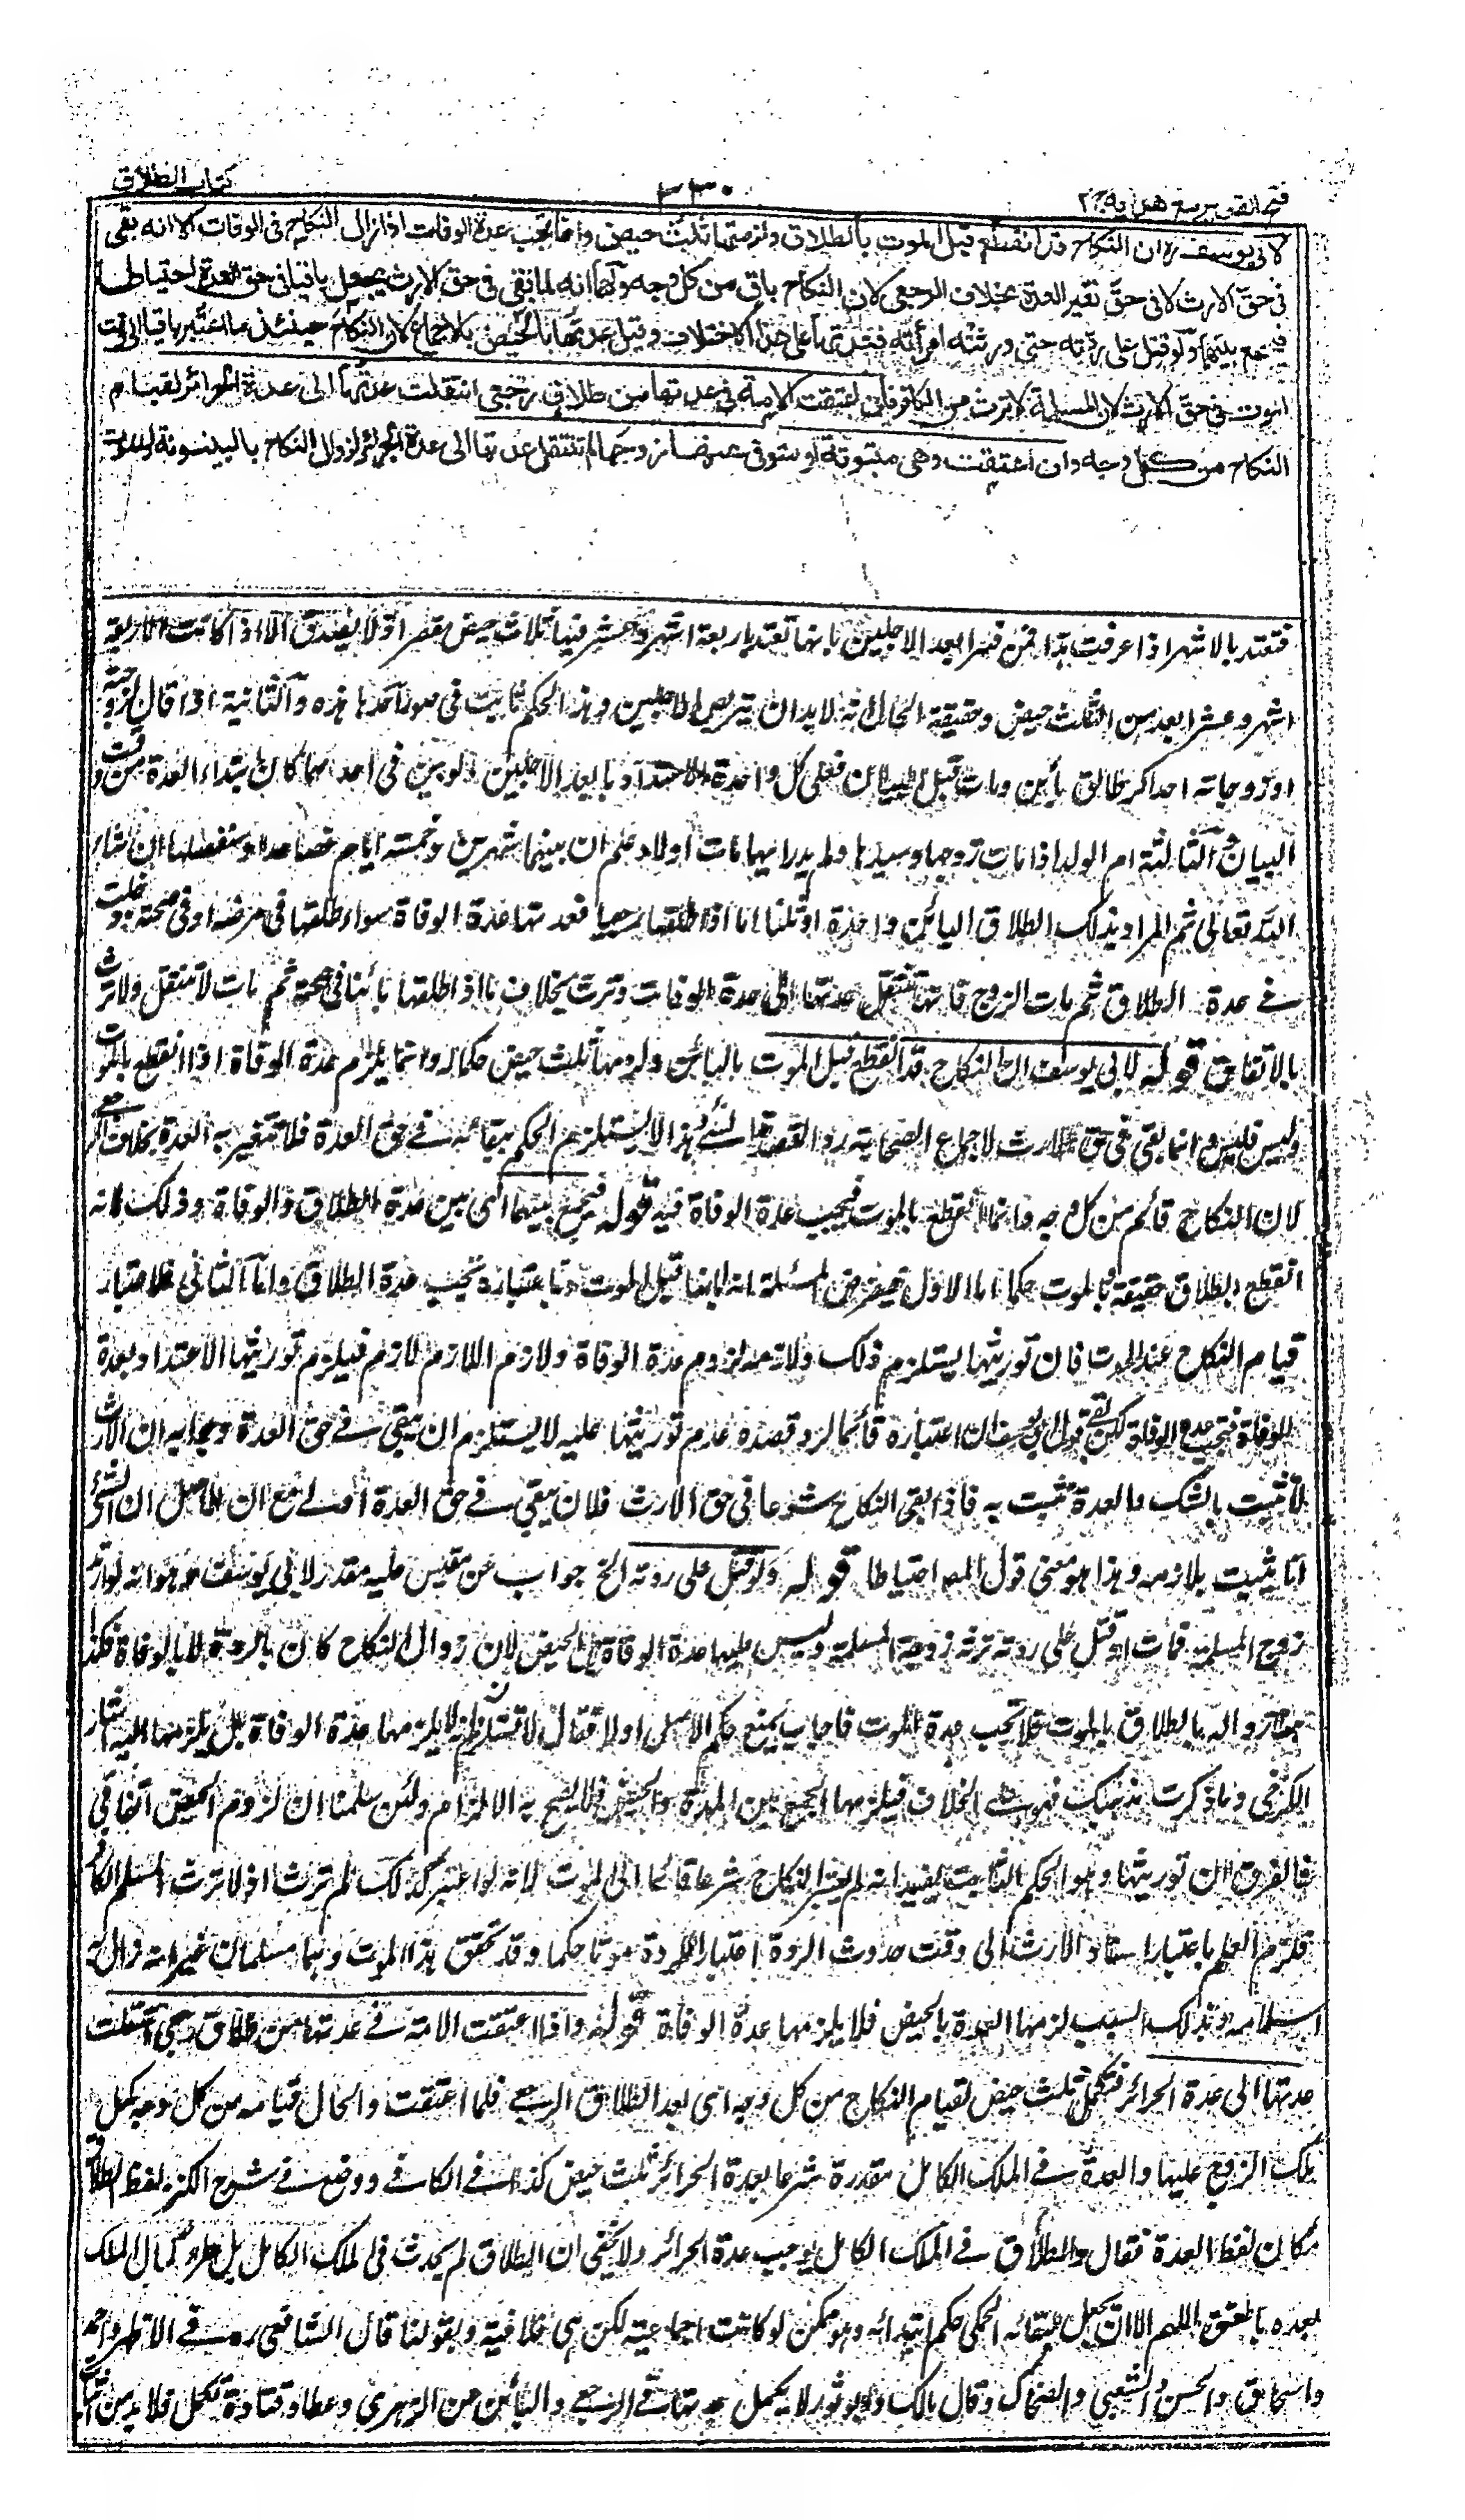 كتاب الطلاق
٣٣٠
فتح القدير مع هدايه ج٢
لابي يوسف ره ان النكاح قد انقطع قبل الموت بالطلاق ولزمتها ثلث حيض وانما تجب عدة الوفات اذا زال النكاح في الوفات الا انه بقى
في حق الارث لا في حق تغير العدة بخلاف الرجعى لان النكاح باق من كل وجه ولهما انه لما بقى في حق الارث يجعل باقيا في حق العدة احتياطا
فيجمع بينهما ولو قتل على ردته حتى ورثته امرأته فعدتها على هذا الاختلاف وقيل عدتها بالحيض بالاجماع لان النكاح حينئذ ما اعتبر باقيا الى وقت
الموت في حق الارث لان المسلمة لا ترث من الكافر فاذا اعتقت الامة في عدتها من طلاق رجعى انتقلت عدتها الى عدة الحرائر لقيام
النكاح من كل وجه وان اعتقت وهى مبتوتة او متوفى عنها زوجها لم تنتقل عدتها الى عدة الحرائر لزوال النكاح بالبينونة او الموت
فتعتد بالاشهر اذا عرفت هذا فمن فسر ابعد الاجلين بانها تعتد باربعة اشهر وعشر فيها ثلاث حيض مقصر اذ لا يصدق الا اذا كانت الاربعة
اشهر وعشرا بعد من الثلث حيض وحقيقة الحال انه لا بد ان تتربص الاجلين وهذا الحكم ثابت في صور احدها هذه والثانية اذا قال لزوجتيه
او زوجاته احداكن طالق بائن ومات قبل البيان فعلى كل واحدة الاعتداد بابعد الاجلين ولو بين في احدهما كان ابتداء العدة من وقت
البيان والثالثة ام الولد اذا مات زوجها وسيدها ولم يدر ايهما مات اولا وعلم ان بينهما شهرين وخمسة ايام فصاعدا وستفصلها ان شاء
الله تعالى ثم المراد بذلك الطلاق البائن واحدة او ثلثا اما اذا طلقها رجعيا فعدتها عدة الوفاة سواء طلقها في مرضه او في صحته ودخلت
في عدة الطلاق ثم مات الزوج فانها تنتقل عدتها الى عدة الوفات وترث بخلاف ما اذا طلقها بائنا في صحته ثم مات لا تنتقل ولا ترث
بالاتفاق قوله لابي يوسف ان النكاح قد انقطع قبل الموت بالبائن ولزومها ثلث حيض حكما له وانما يلزم عدة الوفاة اذا انقطع بالموت
وليس فليس وانما بقى في حق الارث لاجماع الصحابة ردا لقصده السئ وهذا لا يستلزم الحكم ببقائه في حق العدة فلا تتغير به العدة بخلاف الرجعى
لان النكاح قائم من كل وجه وانما انقطع بالموت فيجب عدة الوفاة فيه قوله فيجمع بينهما اى بين عدة الطلاق والوفاة وذلك لانه
انقطع بالطلاق حقيقة وبالموت حكما اما الاول فبفرض المسئلة انه ابانها قبل الموت وباعتباره تجب عدة الطلاق واما الثانى فلاعتبار
قيام النكاح عند الموت فان توريثها يستلزم ذلك ولازمه لزوم عدة الوفاة ولازم اللازم لازم فيلزم توريثها الاعتداد بعدة
الوفاة فتجب عدة الوفاة لكن بقى قول ابى يوسف ان اعتباره قائما لرد قصده عدم توريثها عليه لا يستلزم ان يبقى في حق العدة وجوابه ان الارث
لا يثبت بالشك والعدة تثبت به فاذا بقى النكاح شرعا في حق الارث فلان يبقى في حق العدة اولى مع ان الاصل ان الشئ
اذا ثبت يثبت بلازمه وهذا هو معنى قول المص احتياطا قوله ولو قتل على ردته الخ جواب عن مقيس عليه مقدر لابي يوسف وهو انه لو ارتد
زوج المسلمة فمات او قتل على ردته ترثه زوجته المسلمة وليس عليها عدة الوفاة بل الحيض لان زوال النكاح كان بالردة لا بالوفاة فكذا
هنا زواله بالطلاق لا بالموت فلا تجب عدة الموت فاجاب بمنع حكم الاصل اولا فقال لا نسلم انه لا يلزمها عدة الوفاة بل يلزمها اليه اشار
الكرخى وما ذكرت مذهبك فهو على الخلاف فيلزمها الجمع بين المدة والحيض فلا يصح به الالزام ولئن سلمنا ان لزوم الحيض اتفاقى
فالفرق ان توريثها وهو الحكم الثابت يفيد انه لم يعتبر النكاح شرعا قائما الى الموت لانه لو اعتبر كذلك لم ترث اذ لا ترث المسلم الكافر
فلزم العلم باعتبار استناد الارث الى وقت حدوث الردة اعتبارا للردة موتا حكما وقد تحقق هذا الموت وهما مسلمان غير انه زال به
اسلامه وبذلك السبب لزمها العدة بالحيض فلا يلزمها عدة الوفاة قوله واذا اعتقت الامة في عدتها من طلاق رجعى انتقلت
عدتها الى عدة الحرائر فتكمل ثلث حيض لقيام النكاح من كل وجه اى بعد الطلاق الرجعى فلما اعتقت والحال قيامه من كل وجه كمل
ملك الزوج عليها والعدة في الملك الكامل مقدرة شرعا بعدة الحرائر ثلث حيض كذا في الكافى ووقع في شروح الكنز لفظ الطلاق
مكان لفظ العدة فقال والطلاق في الملك الكامل يوجب عدة الحرائر ولا يخفى ان الطلاق لم يحدث في الملك الكامل بل طرو كمال الملك
بعده بالعتق اللهم الا ان يجعل لبقائه الحكمى حكم ابتدائه وهو ممكن لو كانت اجماعية لكن هى خلافية وبقولنا قال الشافعى ره في الاظهر واحمد
واسحاق والحسن والشعبى والضحاك وقال مالك وابو ثور لا يكمل عدتها في الرجعى والبائن وعن الزهرى وعطاء وقتادة تكمل فلا بد من اثبات